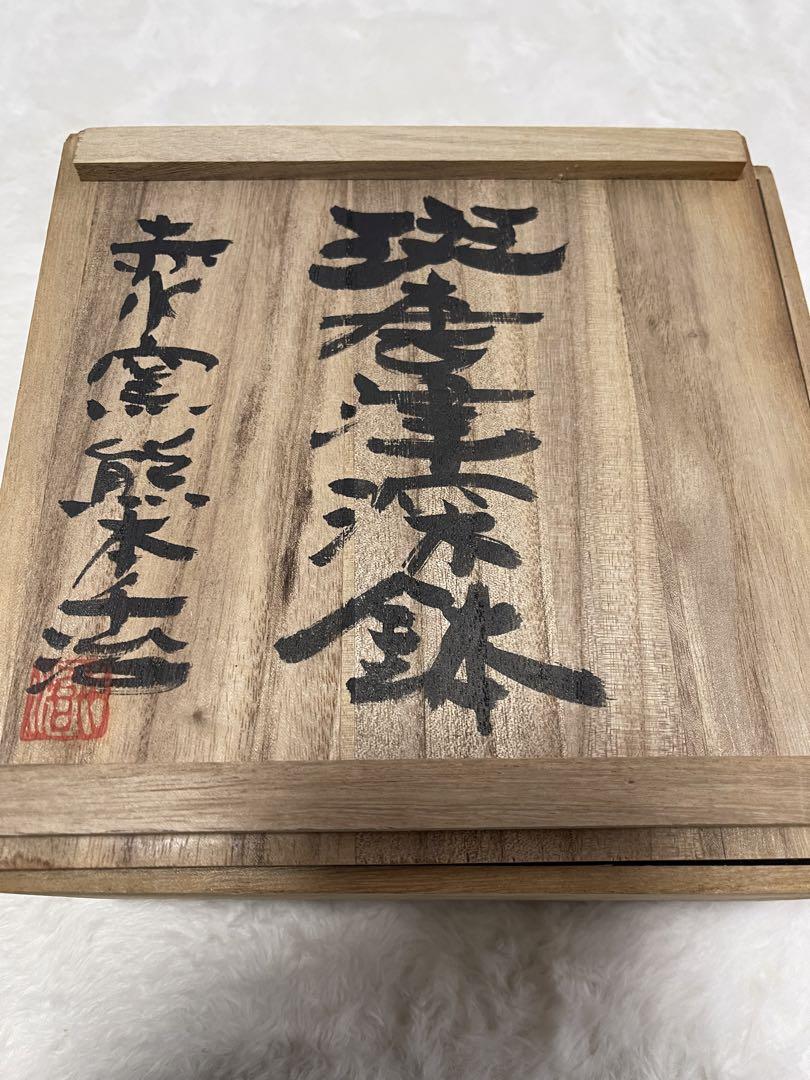 斑唐津深鉢
赤水窯熊本千治